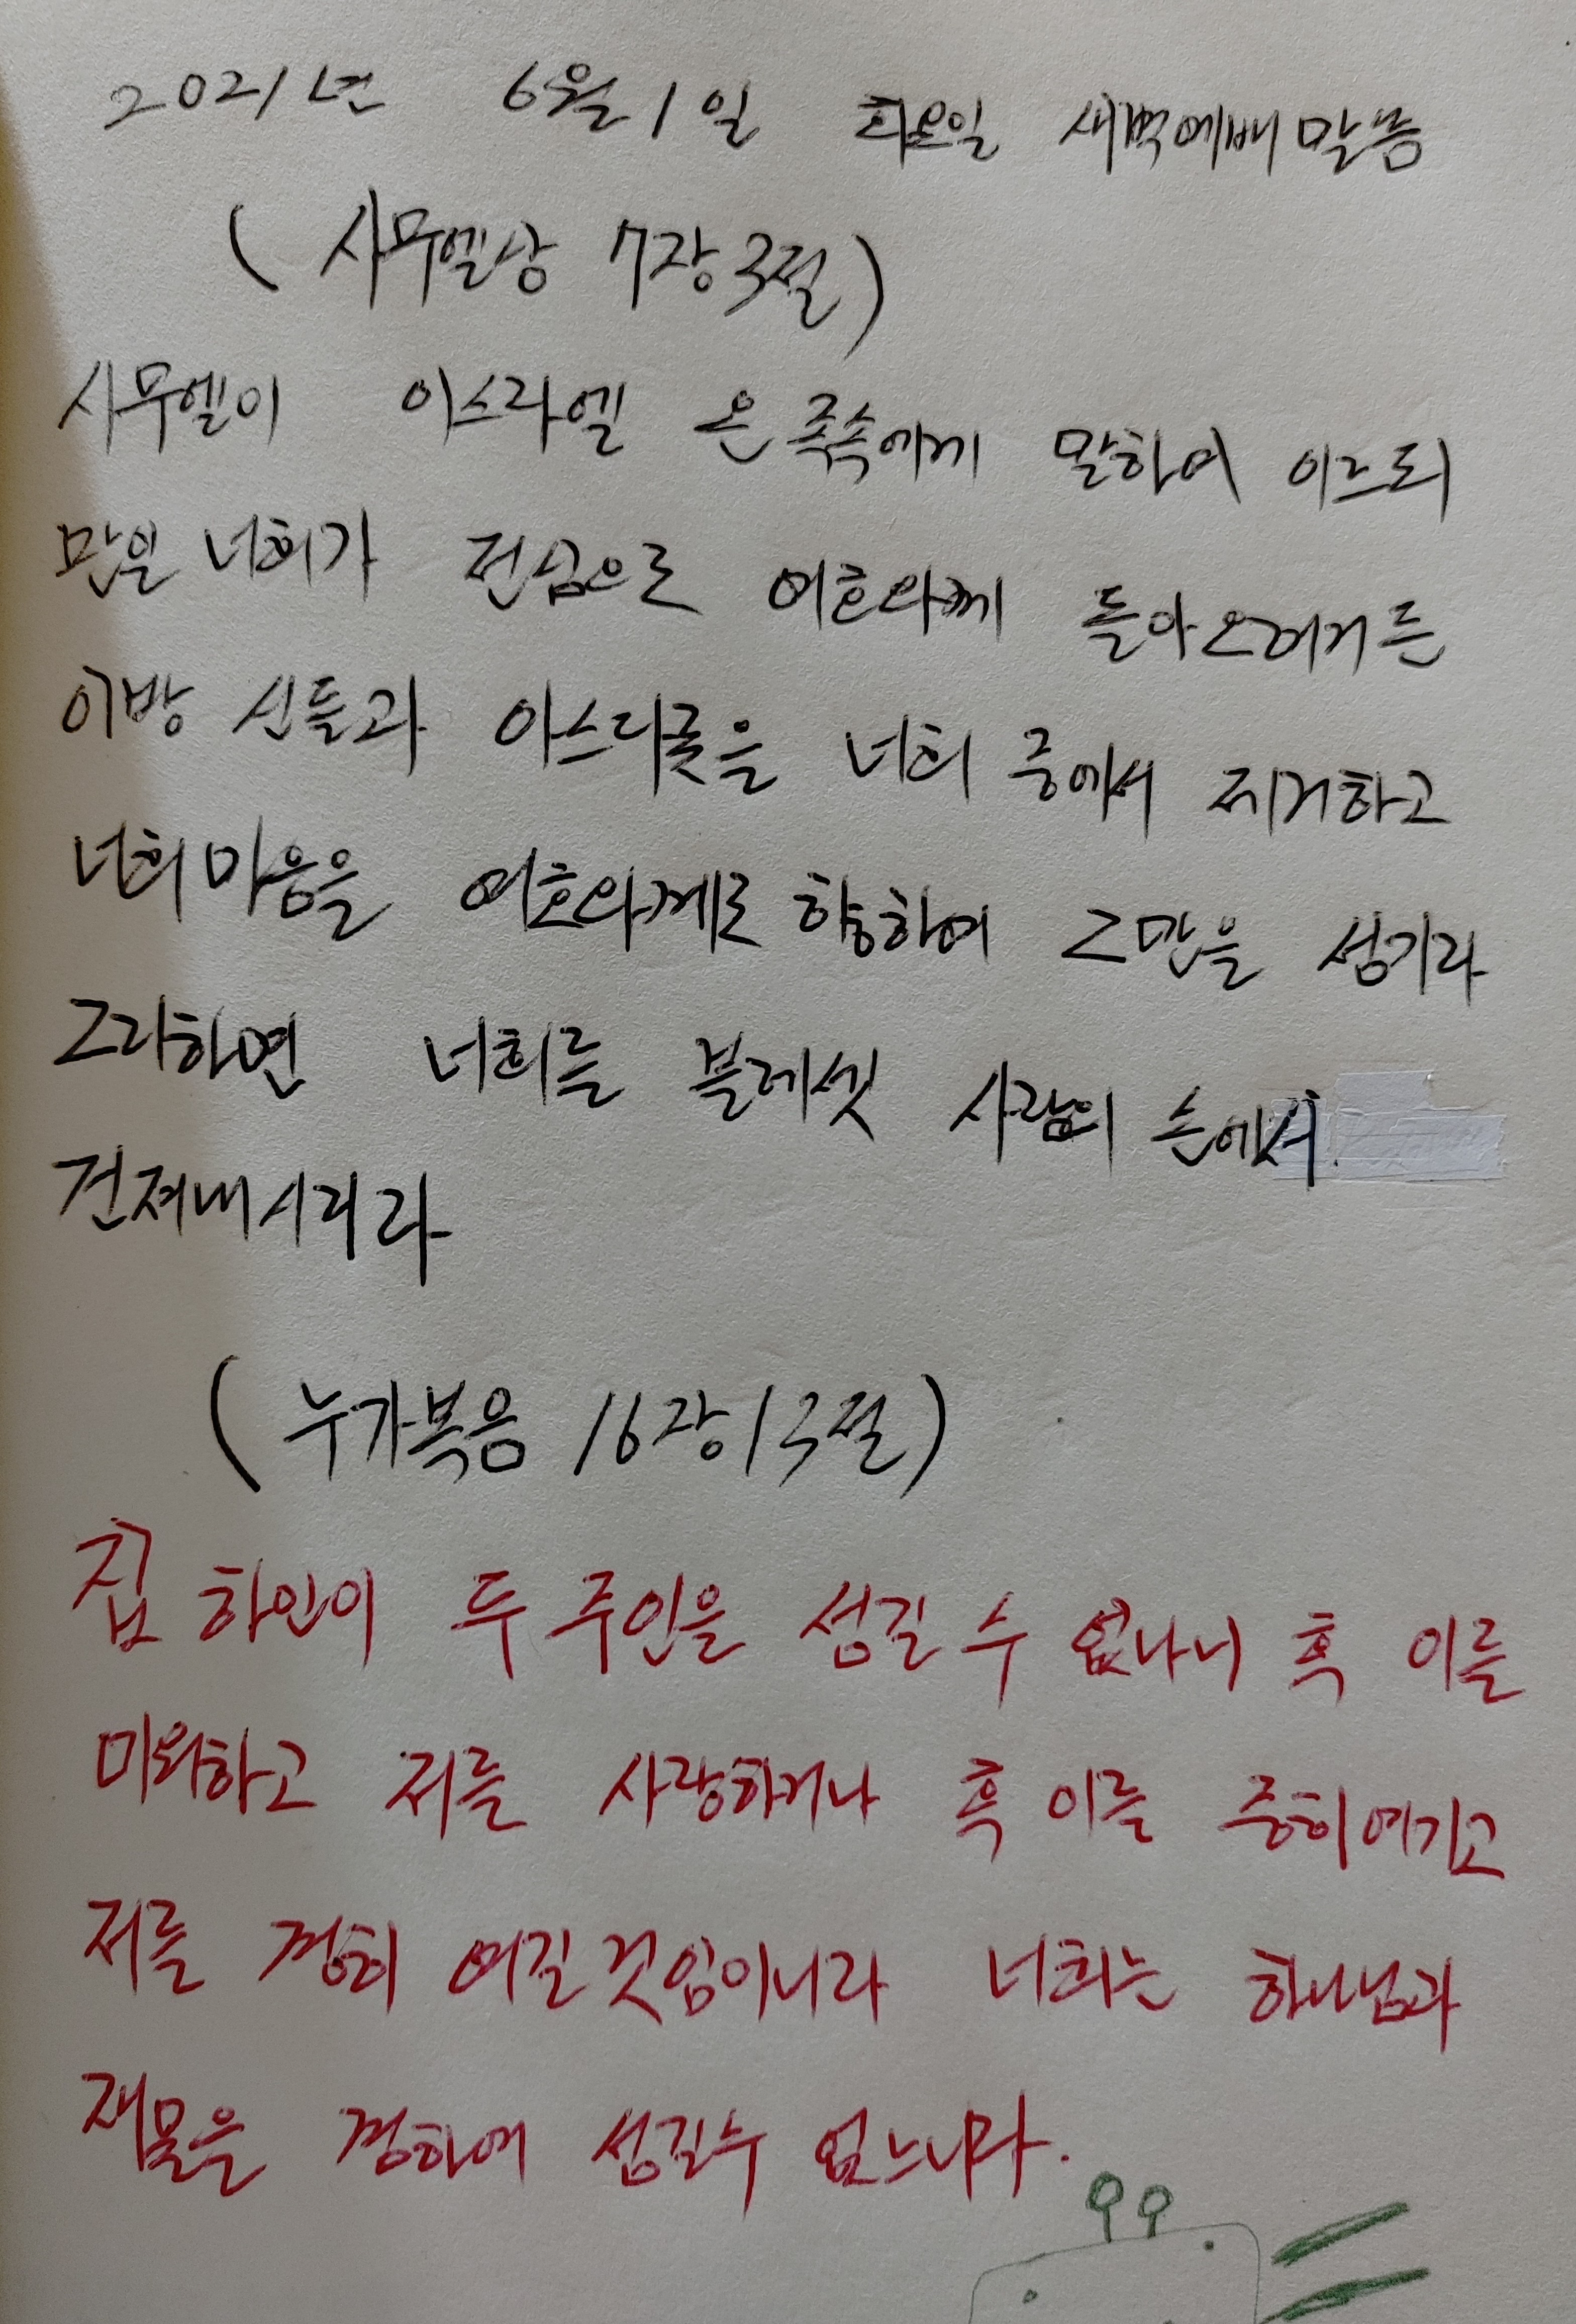 2021년 6월 1일 화요일 새벽예배 말씀
( 사무엘상 7장 3절 )
사무엘이 이스라엘 온 족속에게 말하여 이르되
만일 너희가 전심으로 여호와께 돌아오려거든
이방 신들과 아스다롯을 너희 중에서 제거하고
너희 마음을 여호와께로 향하여 그만을 섬기라
그리하면 너희를 블레셋 사람의 손에서
건져내시리라
( 누가복음 16장 13절 )
집 하인이 두 주인을 섬길 수 없나니 혹 이를
미워하고 저를 사랑하거나 혹 이를 중히 여기고
저를 경히 여길 것임이니라 너희는 하나님과
재물을 겸하여 섬길 수 없느니라.